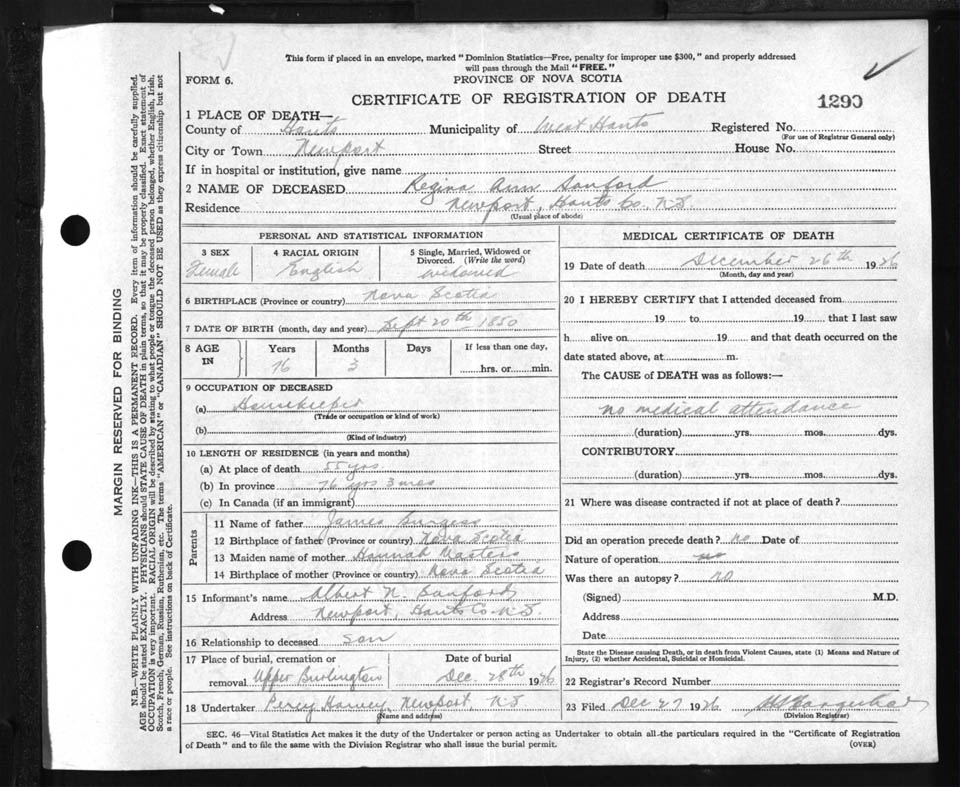 This form if placed in an envelope, marked "Dominion Statistics—Free, penalty for improper use $300," and properly addressed
will pass through the Mail "FREE."
FORM 6.
PROVINCE OF NOVA SCOTIA
CERTIFICATE OF REGISTRATION OF DEATH
1290
1 PLACE OF DEATH—
County of Hants Municipality of West Hants Registered No.
(For use of Registrar General only)
City or Town Newport Street House No.
If in hospital or institution, give name
2 NAME OF DECEASED Regina Ann Sanford
Residence Newport, Hants Co. N.S.
(Usual place of abode)
PERSONAL AND STATISTICAL INFORMATION
3 SEX Female
4 RACIAL ORIGIN English
5 Single, Married, Widowed or Divorced. (Write the word) widowed
6 BIRTHPLACE (Province or country) Nova Scotia
7 DATE OF BIRTH (month, day and year) Sept 20th 1850
8 AGE IN Years Months Days If less than one day,
76 3 hrs. or min.
9 OCCUPATION OF DECEASED
(a) Housekeeper
(Trade or occupation or kind of work)
(b)
(Kind of industry)
10 LENGTH OF RESIDENCE (in years and months)
(a) At place of death 55 yrs
(b) In province 76 yrs 3 mos
(c) In Canada (if an immigrant)
Parents
11 Name of father James Burgess
12 Birthplace of father (Province or country) Nova Scotia
13 Maiden name of mother Hannah Masters
14 Birthplace of mother (Province or country) Nova Scotia
15 Informant's name Albert N. Sanford
Address Newport, Hants Co. N.S.
16 Relationship to deceased son
17 Place of burial, cremation or removal Upper Burlington
Date of burial Dec. 28th 1926
18 Undertaker Percy Harvey, Newport, N.S
(Name and address)
MEDICAL CERTIFICATE OF DEATH
19 Date of death December 26th 1926
(Month, day and year)
20 I HEREBY CERTIFY that I attended deceased from
19 to 19 that I last saw
h alive on 19 and that death occurred on the
date stated above, at m.
The CAUSE of DEATH was as follows:—
no medical attendance
(duration) yrs. mos. dys.
CONTRIBUTORY
(duration) yrs. mos. dys.
21 Where was disease contracted if not at place of death?
Did an operation precede death? no Date of
Nature of operation no
Was there an autopsy? no
(Signed) M.D.
Address
Date
State the Disease causing Death, or in death from Violent Causes, state (1) Means and Nature of
Injury, (2) whether Accidental, Suicidal or Homicidal.
22 Registrar's Record Number
23 Filed Dec 27 1926
(Division Registrar)
SEC. 46—Vital Statistics Act makes it the duty of the Undertaker or person acting as Undertaker to obtain all the particulars required in the "Certificate of Registration
of Death" and to file the same with the Division Registrar who shall issue the burial permit.
(OVER)
MARGIN RESERVED FOR BINDING
N.B.—WRITE PLAINLY WITH UNFADING INK—THIS IS A PERMANENT RECORD. Every item of information should be carefully supplied.
AGE should be stated EXACTLY. PHYSICIANS should STATE CAUSE OF DEATH in plain terms, so that it may be properly classified. Exact statement of
OCCUPATION is very important. RACIAL ORIGIN will be described by stating to what people or tongue the deceased person belonged, whether English, Irish,
Scotch, French, German, Russian, Ruthenian, etc. The terms "AMERICAN" or "CANADIAN" SHOULD NOT BE USED as they express citizenship but not
a race or people. See instructions on back of Certificate.